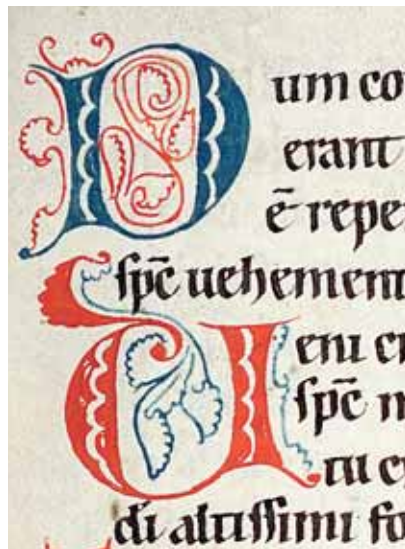 Dum co
erant
ē repe
sp̄c uehement
Ueni cr
sp̄c m
tu c
dī altissimi fo